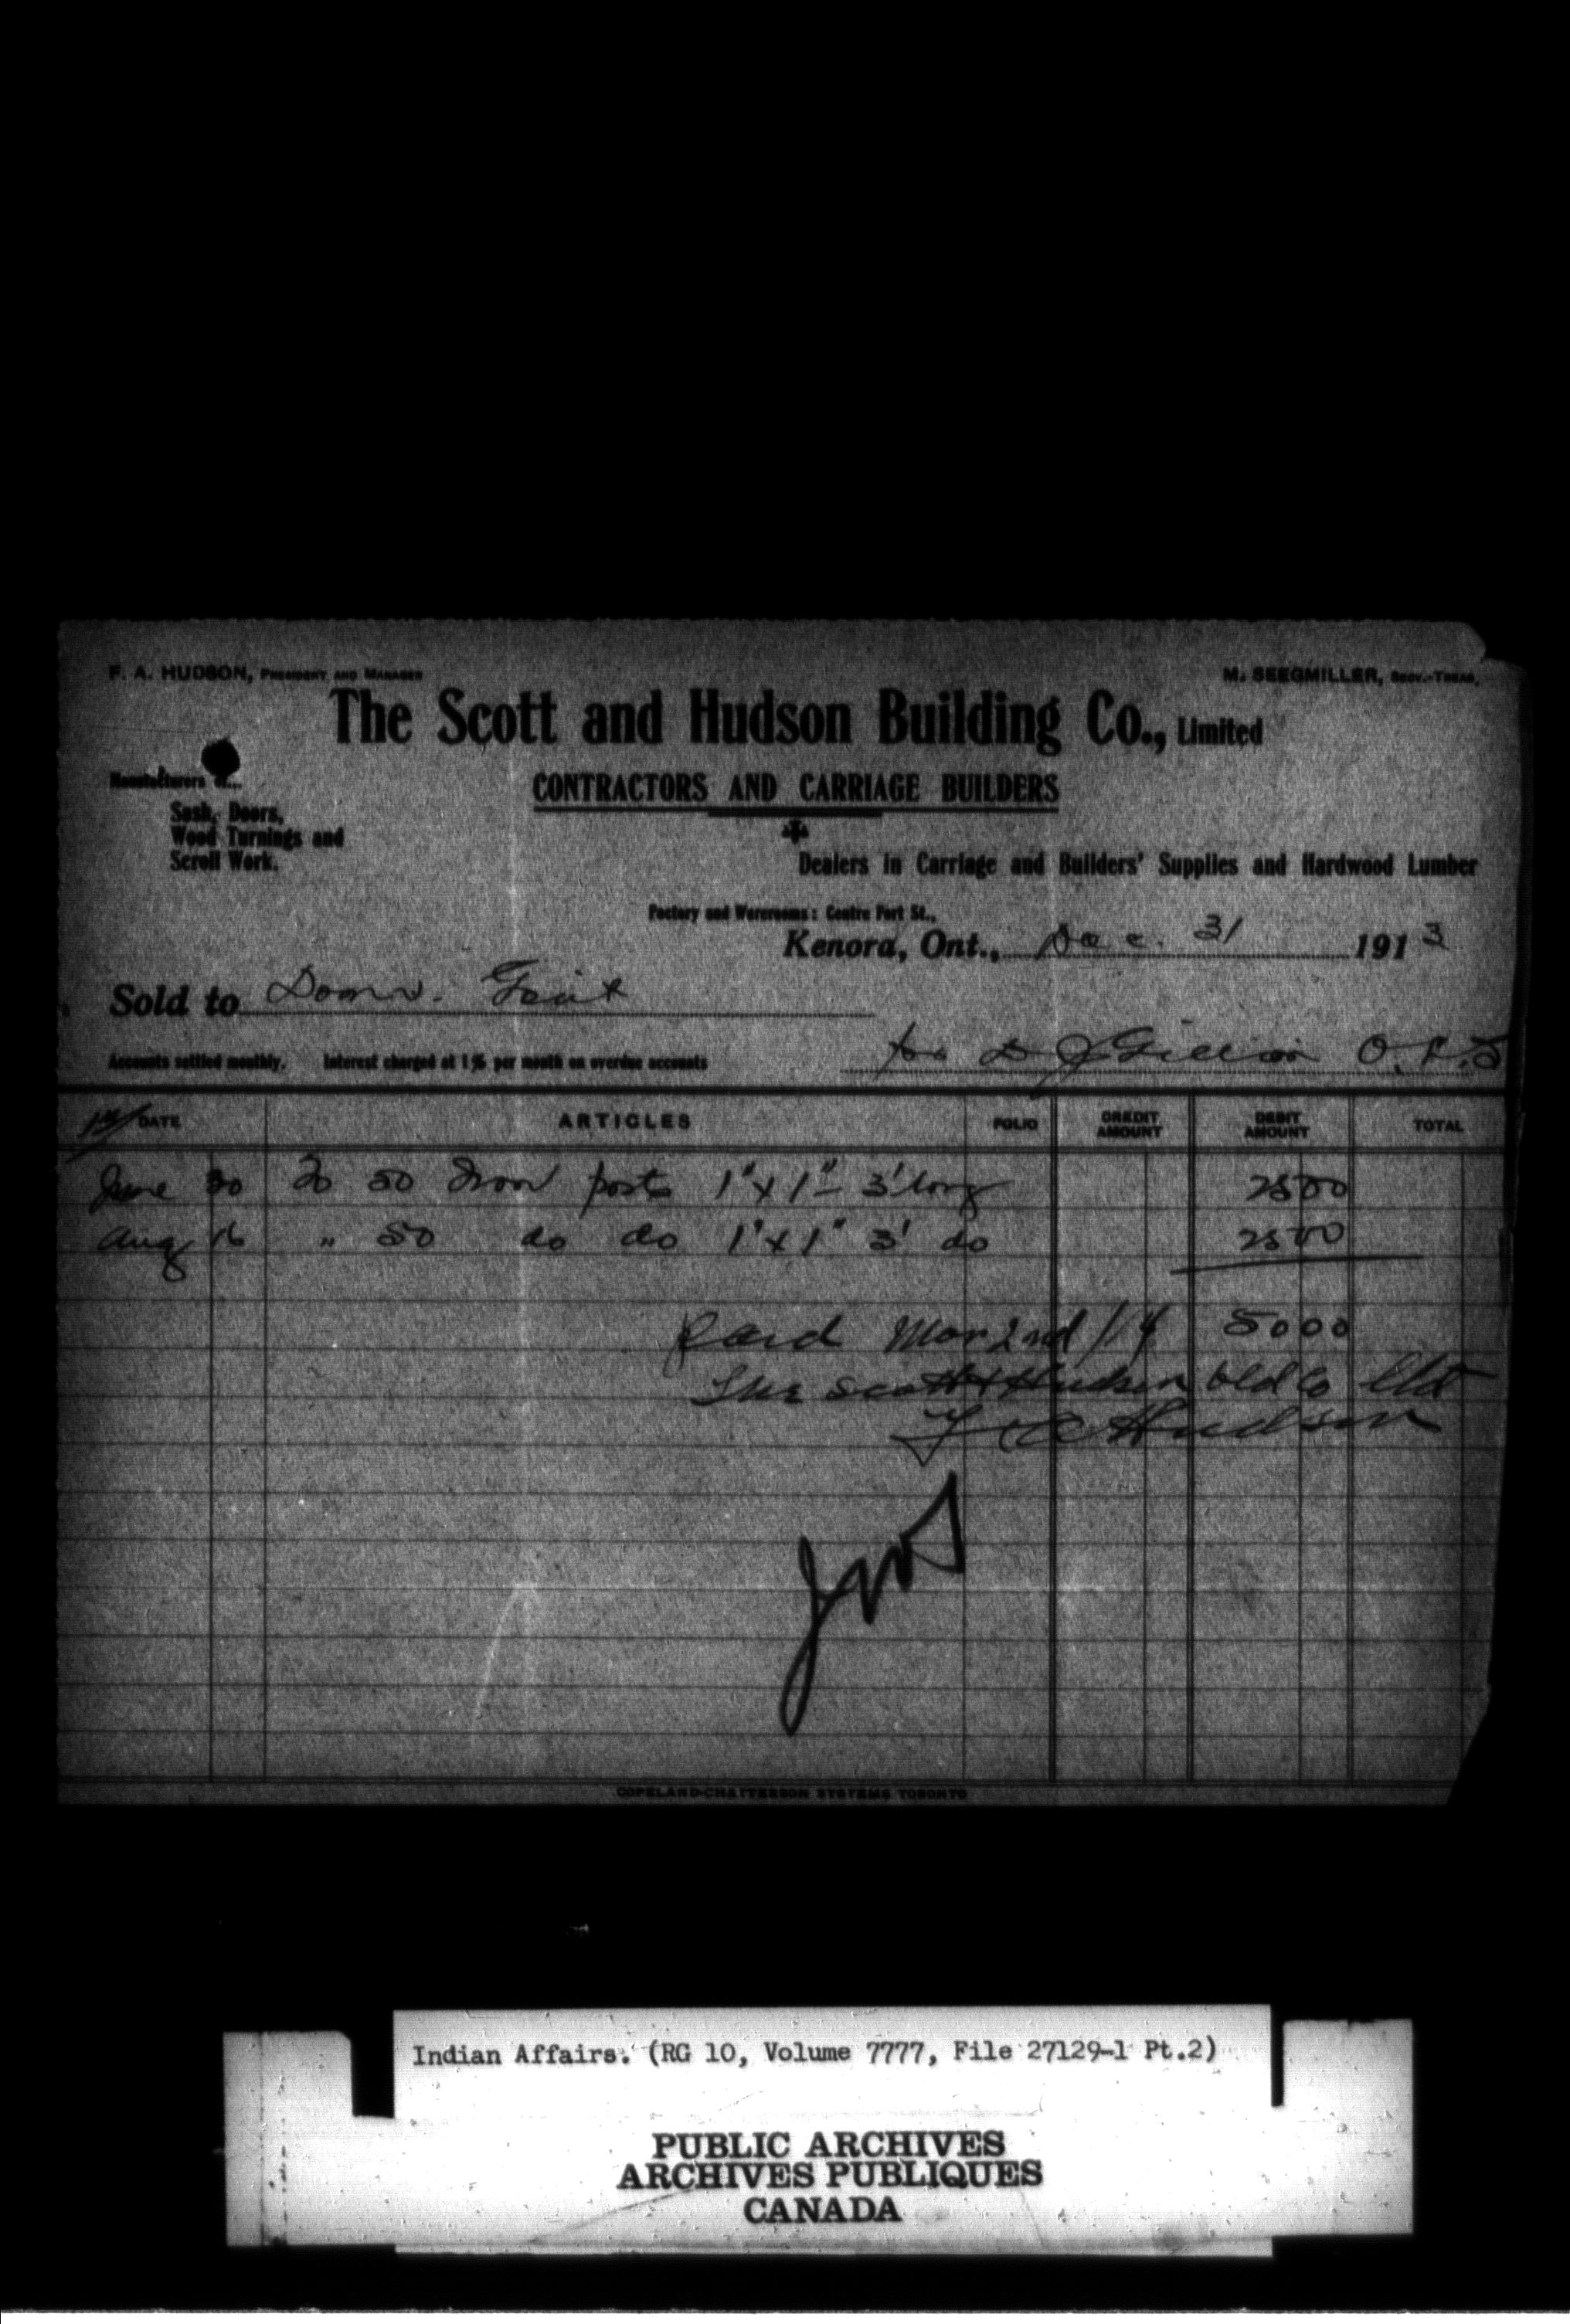 F. A. HUDSON, PRESIDENT AND MANAGER
M. SEEGMILLER, SECY.-TREAS.
The Scott and Hudson Building Co., Limited
Manufacturers
CONTRACTORS AND CARRIAGE BUILDERS
Sash, Doors,
Wood Turnings and
Scroll Work.
Dealers in Carriage and Builders' Supplies and Hardwood Lumber
Factory and Warerooms: Centre Fort St.,
Kenora, Ont., Dec. 31 1913
Sold to Domn. Govt
Accounts settled monthly. Interest charged at 1% per month on overdue accounts
per D J Gillon O.L.S
DATE ARTICLES FOLIO CREDIT AMOUNT DEBIT AMOUNT TOTAL
June 30 To 50 Iron posts 1" x 1" - 3' long 2500
Aug 16 " 50 do do 1" x 1" 3' do 2500
Paid Mar 2nd /14 5000
The Scott & Hudson Bld Co Ltd
F A Hudson
COPELAND-CHATTERSON SYSTEMS TORONTO
Indian Affairs. (RG 10, Volume 7777, File 27129-1 Pt.2)
PUBLIC ARCHIVES
ARCHIVES PUBLIQUES
CANADA